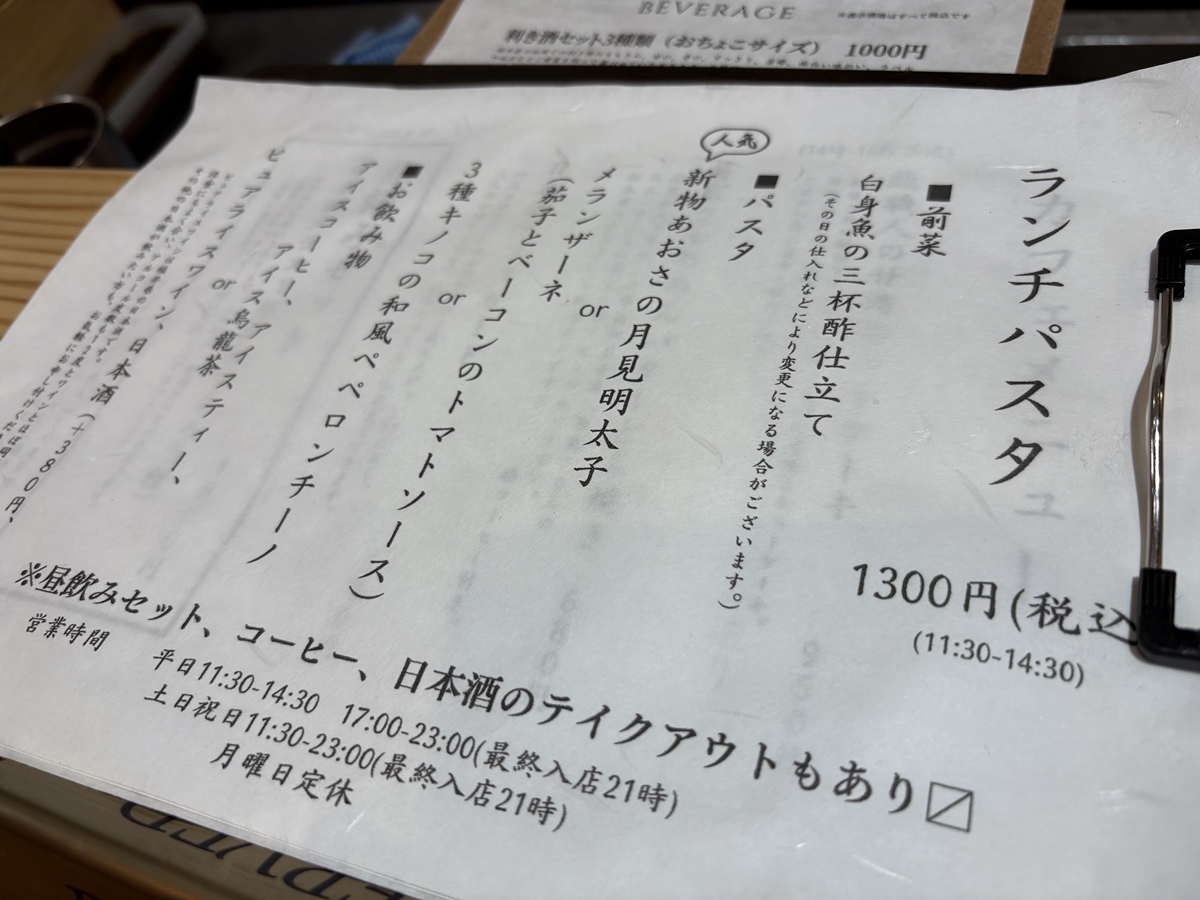 BEVERAGE
※表示価格はすべて税込です
利き酒セット3種類（おちょこサイズ） 1000円
ランチパスタ
1300円(税込
(11:30-14:30)
■前菜
白身魚の三杯酢仕立て
(その日の仕入れなどにより変更になる場合がございます。)
■パスタ
人気
新物あおさの月見明太子
or
メランザーネ
(茄子とベーコンのトマトソース)
or
3種キノコの和風ペペロンチーノ
■お飲み物
アイスコーヒー、アイスティー、
アイス烏龍茶
or
ピュアライスワイン、日本酒(+380円、
※昼飲みセット、コーヒー、日本酒のテイクアウトもあり〼
営業時間
平日11:30-14:30 17:00-23:00(最終入店21時)
土日祝日11:30-23:00(最終入店21時)
月曜日定休